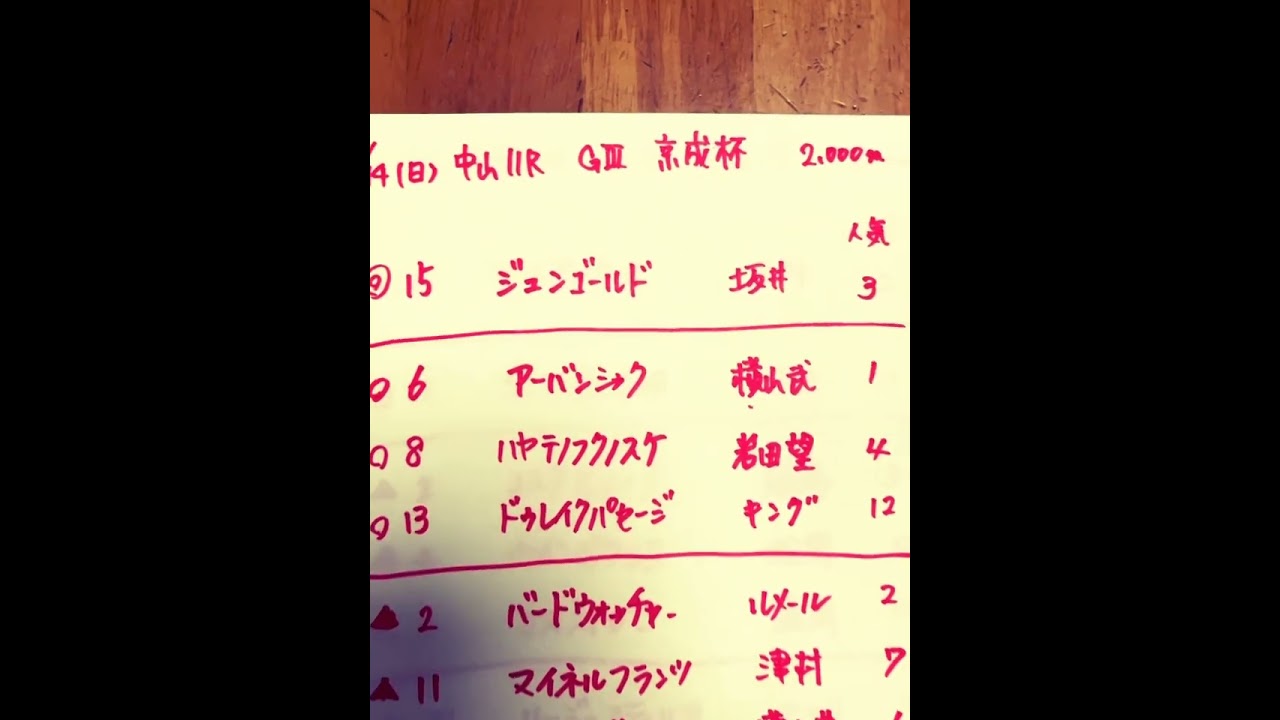 /14(日) 中山11R GⅢ 京成杯 2.000m
人気
◎ 15 ジュンゴールド 坂井 3
○ 6 アーバンシック 横山武 1
○ 8 ハヤテノフクノスケ 岩田望 4
○ 13 ドゥレイクパセージ キング 12
▲ 2 バードウォッチャー ルメール 2
▲ 11 マイネルフランツ 津村 7